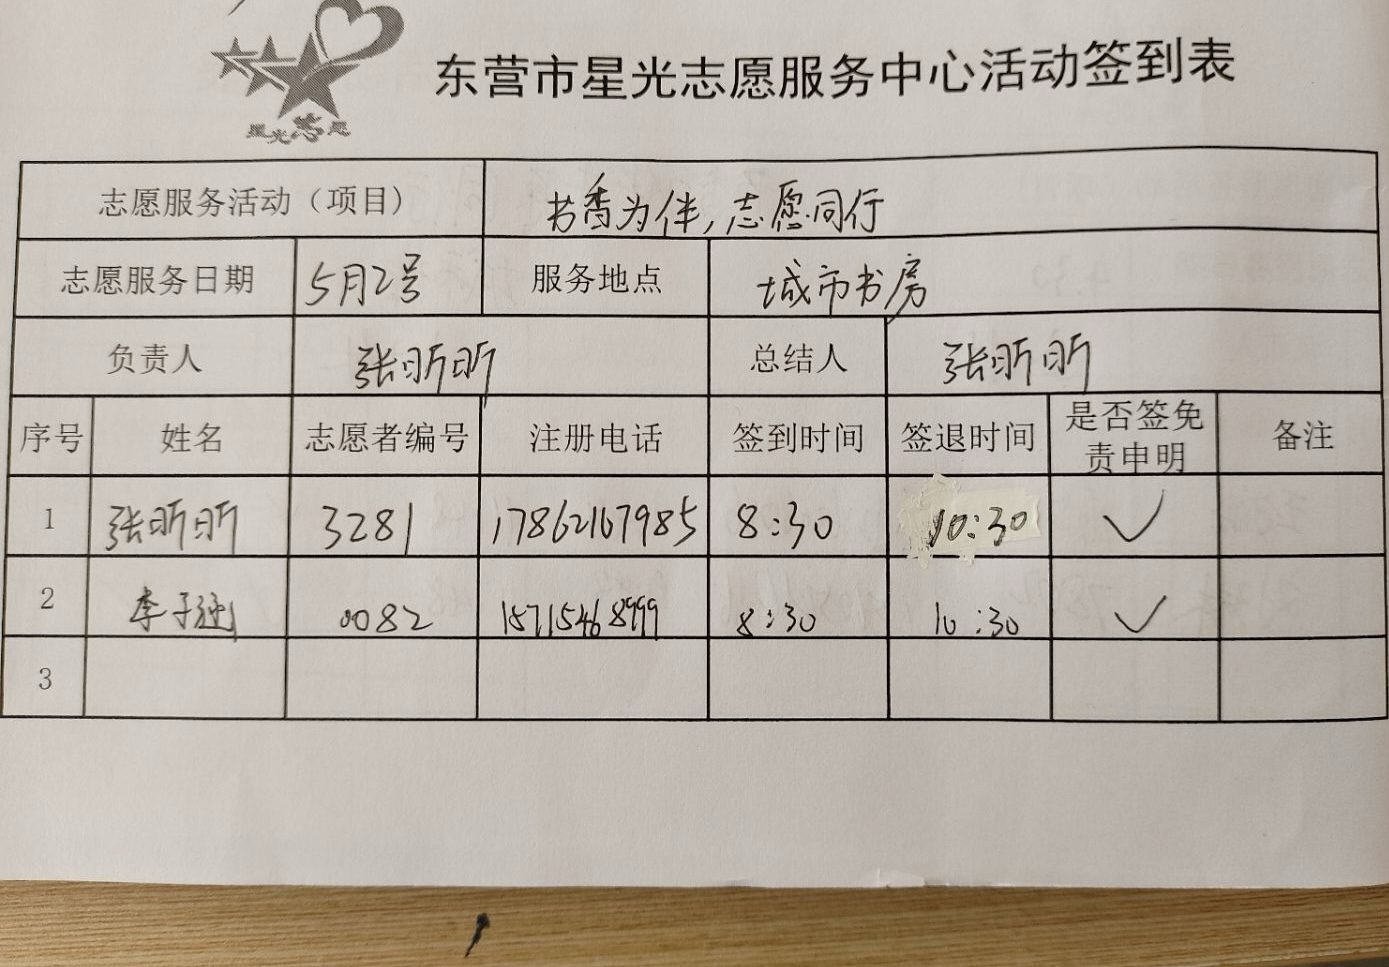 星光志愿
东营市星光志愿服务中心活动签到表
志愿服务活动（项目） 书香为伴,志愿同行
志愿服务日期 5月2号 服务地点 城市书房
负责人 张昕昕 总结人 张昕昕
序号 姓名 志愿者编号 注册电话 签到时间 签退时间 是否签免责申明 备注
1 张昕昕 3281 17862167985 8:30 10:30 ✓
2 李子涵 0082 15715468999 8:30 10:30 ✓
3